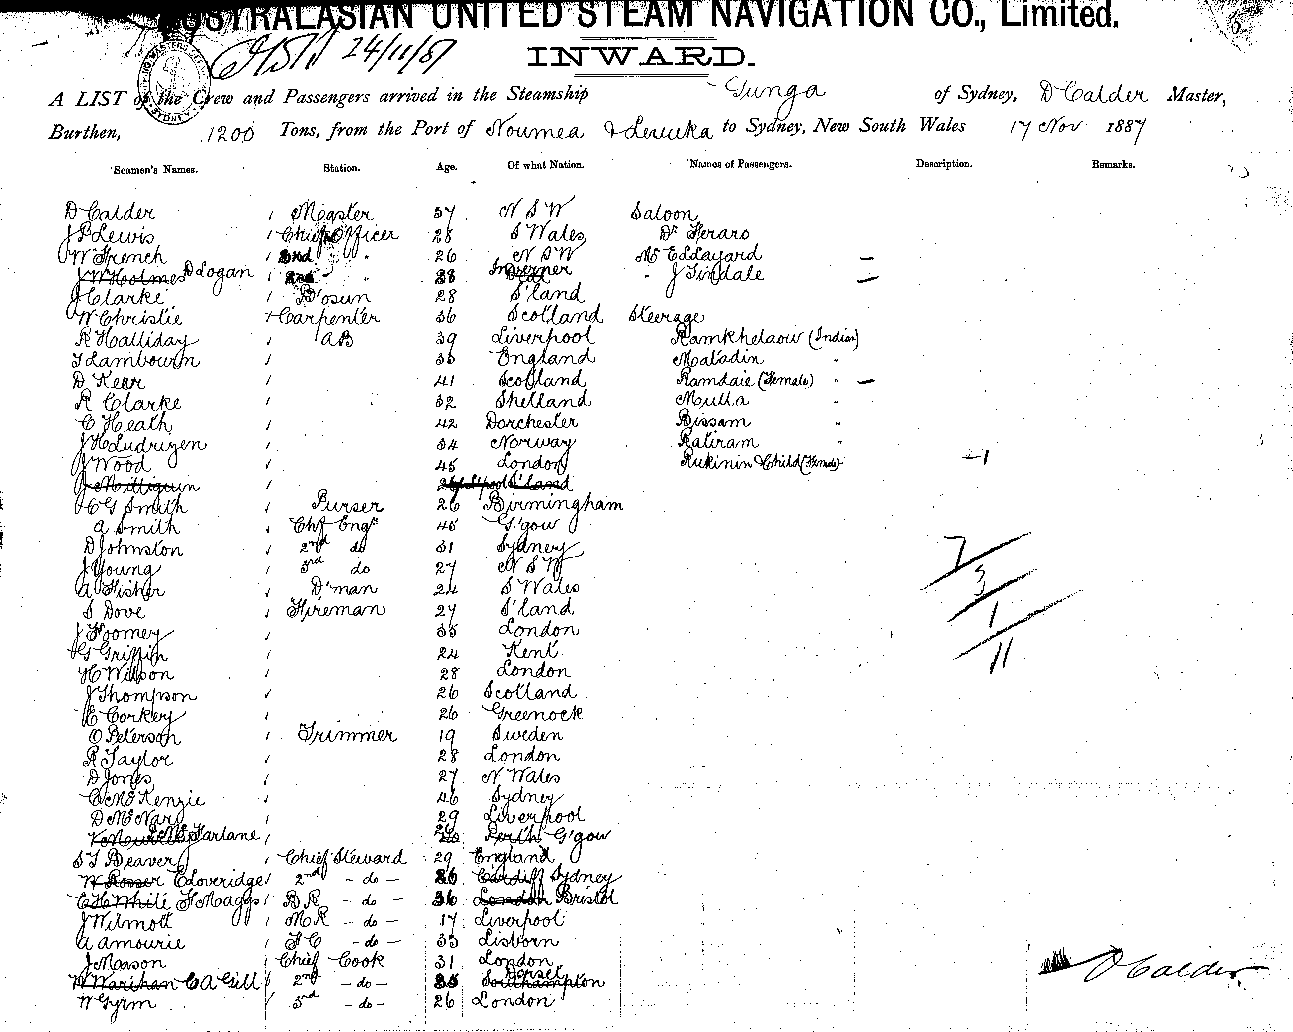 AUSTRALASIAN UNITED STEAM NAVIGATION CO., Limited.
24/11/87
INWARD.
A LIST of the Crew and Passengers arrived in the Steamship Gunga of Sydney, D Calder Master,
Burthen, 1200 Tons, from the Port of Noumea & Levuka to Sydney, New South Wales 17 Nov 1887
Seamen's Names. Station. Age. Of what Nation. Names of Passengers. Description. Remarks.
D Calder 1 Master 37 N S W Saloon
J P Lewis 1 Chief Officer 28 S Wales Dr Feraro
W French 1 2nd " 26 N S W Mr Eddayard —
J W Holmes D Logan 1 " 28 Inverner " J Tindale —
J Clarke 1 B'osun 28 S'land
W Christie 1 Carpenter 36 Scotland Steerage
R Halliday 1 AB 39 Liverpool Ramkhelaow (Indian)
T Lambourn 1 35 England Matadin "
D Kerr 1 41 Scotland Ramdaie (Female) " —
R Clarke 1 32 Shetland Mulla "
C Heath 1 42 Dorchester Bissam "
J H Ludrigen 1 34 Norway Ratiram "
J Wood 1 45 London Rukinin & Child (Female) —1
J Milligan 1 L'pool S'land
H G Smith 1 Purser 26 Birmingham
A Smith 1 Chf Engr 45 G'gow
D Johnston 1 2nd do 31 Sydney
J Young 1 3rd do 27 N S W
A Fisher 1 D'man 24 S Wales
S Dove 1 Fireman 27 S'land
J Toomey 1 35 London
G Griffin 1 24 Kent
H Wilson 1 28 London
J Thompson 1 26 Scotland
E Corkey 1 26 Greenock
O Peterson 1 Trimmer 19 Sweden
R Taylor 1 28 London
D Jones 1 27 N Wales
C McKenzie 1 46 Sydney
D McNary 1 29 Liverpool
McFarlane 1 Perth G'gow
S T Beaver 1 Chief Steward 29 England
W Rosser E Loveridge 1 2nd - do - 26 Cardiff Sydney
C H White F Maggs 1 B R - do - 36 London Bristol
J Wilmott 1 M R - do - 17 Liverpool
A Amourie 1 F C - do - 35 Lisborn
J Mason 1 Chief Cook 31 London
W Warihan C A Gill 1 2nd - do - 35 Southampton Dorset
W Gyrm 1 3rd - do - 26 London
7
3
1
11
D Calder